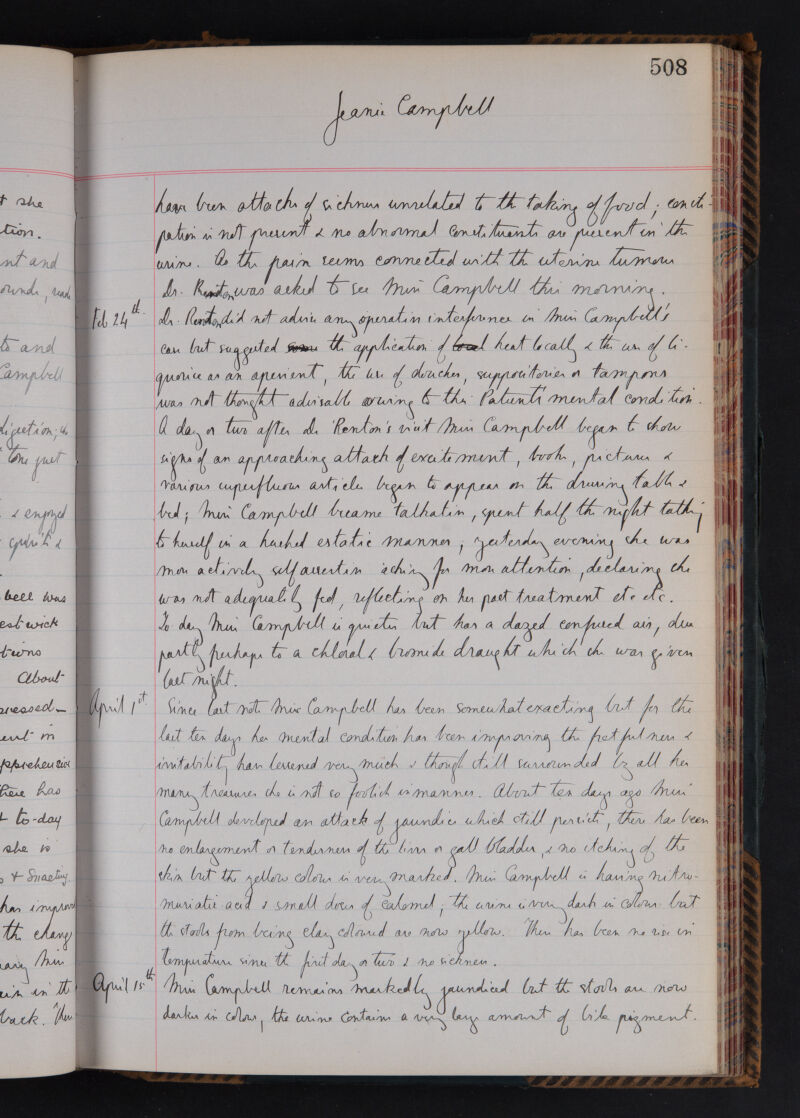 508
Jeanie Campbell
have been attacks of sickness unrelated to the taking of food; consti-
pation is not present & no abnormal constituents are present in the
urine. As the pain seems connected with the uterine tumour
Dr. Renton was asked to see Miss Campbell this morning.
Feb 24th. Dr. Renton did not advise any operative interference in Miss Campbell's
case but suggested the application of heat locally & the use of li-
quorice as an aperient, the use of douches, suppositories or tampons
was not thought advisable owing to the Patient's mental condition.
A day or two after Dr Renton's visit Miss Campbell began to show
signs of an approaching attack of excitement, books, pictures &
various superfluous articles began to appear on the dressing table &
bed; Miss Campbell became talkative, spent half the night talking
to herself in a hushed estatic manner, yesterday evening she was
more actively self assertive asking for more attention, declaring she
was not adequately fed, reflecting on her past treatment etc etc.
To day Miss Campbell is quieter but has a dazed confused air, due
partly perhaps to a chloral & bromide draught which she was given
last night.
April 1st. Since last note Miss Campbell has been somewhat exacting but for the
last ten days her mental condition has been improving the fretfulness &
irritability have lessened very much & though still surrounded by all her
many treasures she is not so foolish in manner. About ten days ago Miss
Campbell developed an attack of jaundice which still persists, there has been
no enlargement or tenderness of the liver or gall bladder, & no itching of the
skin but the yellow colour is very marked. Miss Campbell is having nitro-
muriatic acid & small doses of calomel; the urine is very dark in colour but
the stools from being clay coloured are now yellow. There has been no rise in
temperature since the first day or two & no sickness.
April 15th Miss Campbell remains markedly jaundiced but the stools are now
darker in colour, the urine contains a very large amount of bile pigment.
t she
tion.
nt and
to and
Campbell
digestion;
& enjoyed
been was
About
ent in
apprehensive
here has
t to-day
she is
has improved
the change
Miss
in the
back. There